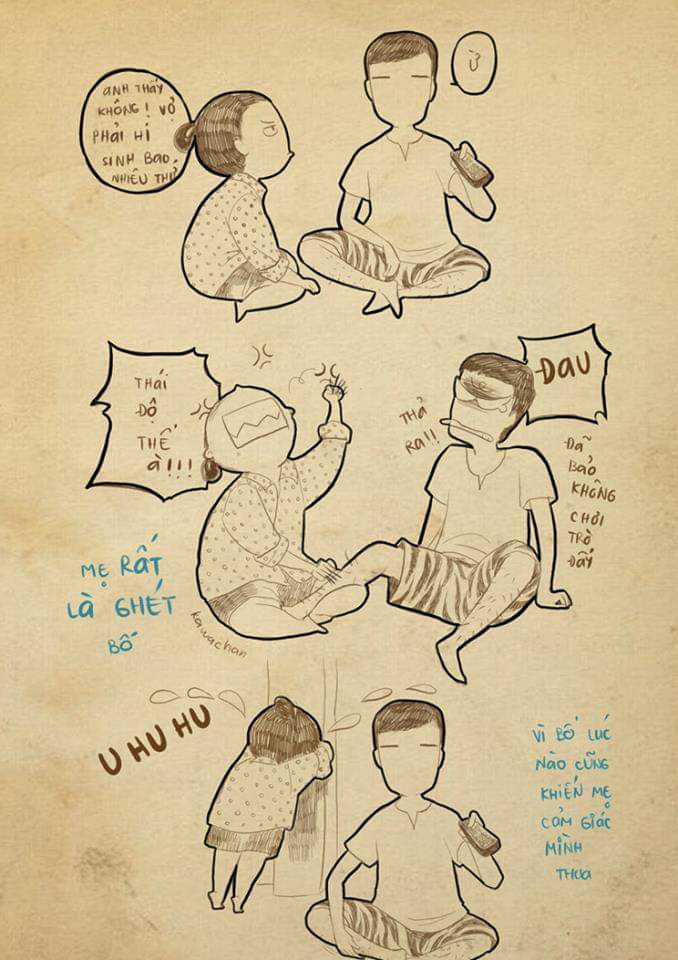 ANH THẤY
KHÔNG! VỢ
PHẢI HI
SINH BAO
NHIÊU THỨ
Ừ
THÁI
ĐỘ
THẾ
À!!!
THẢ
RA!!
ĐAU
ĐÃ
BẢO
KHÔNG
CHƠI
TRÒ
ĐẤY
MẸ RẤT
LÀ GHÉT
BỐ
kawachan
U HU HU
VÌ BỐ LÚC
NÀO CŨNG
KHIẾN MẸ
CẢM GIÁC
MÌNH
THUA